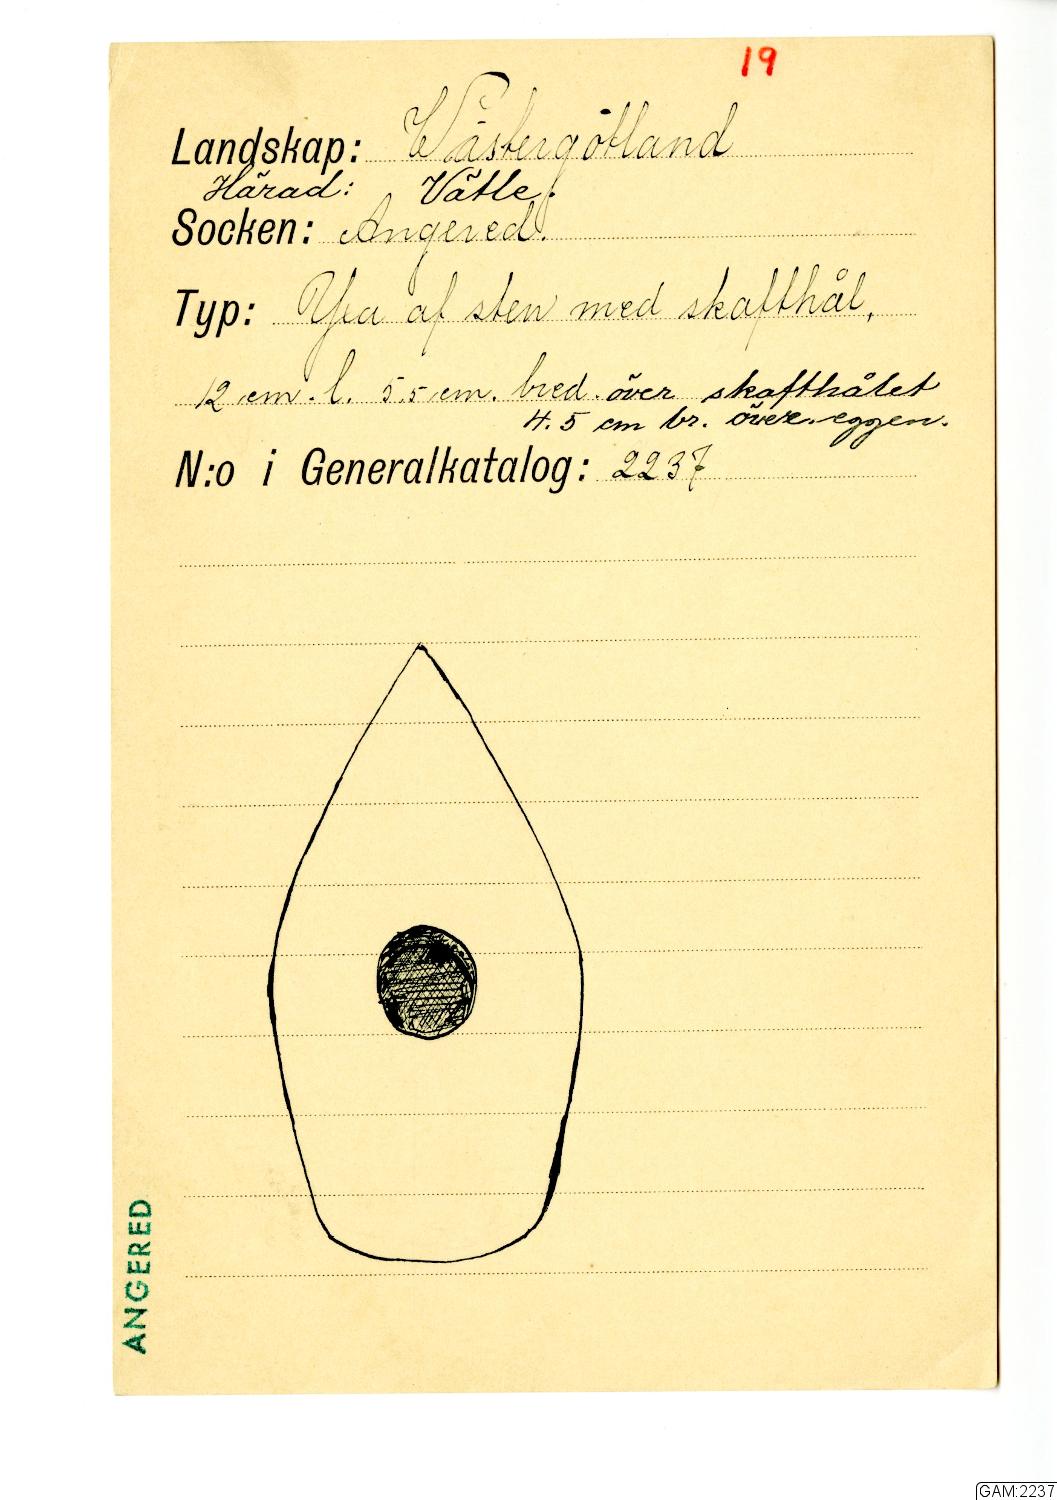 19
Landskap: Västergötland
Härad: Vätle.
Socken: Angered.
Typ: Yxa af sten med skafthål,
12 cm. l. 5.5 cm. bred. över skafthålet
4.5 cm br. över eggen.
N:o i Generalkatalog: 2237
ANGERED
GAM:2237